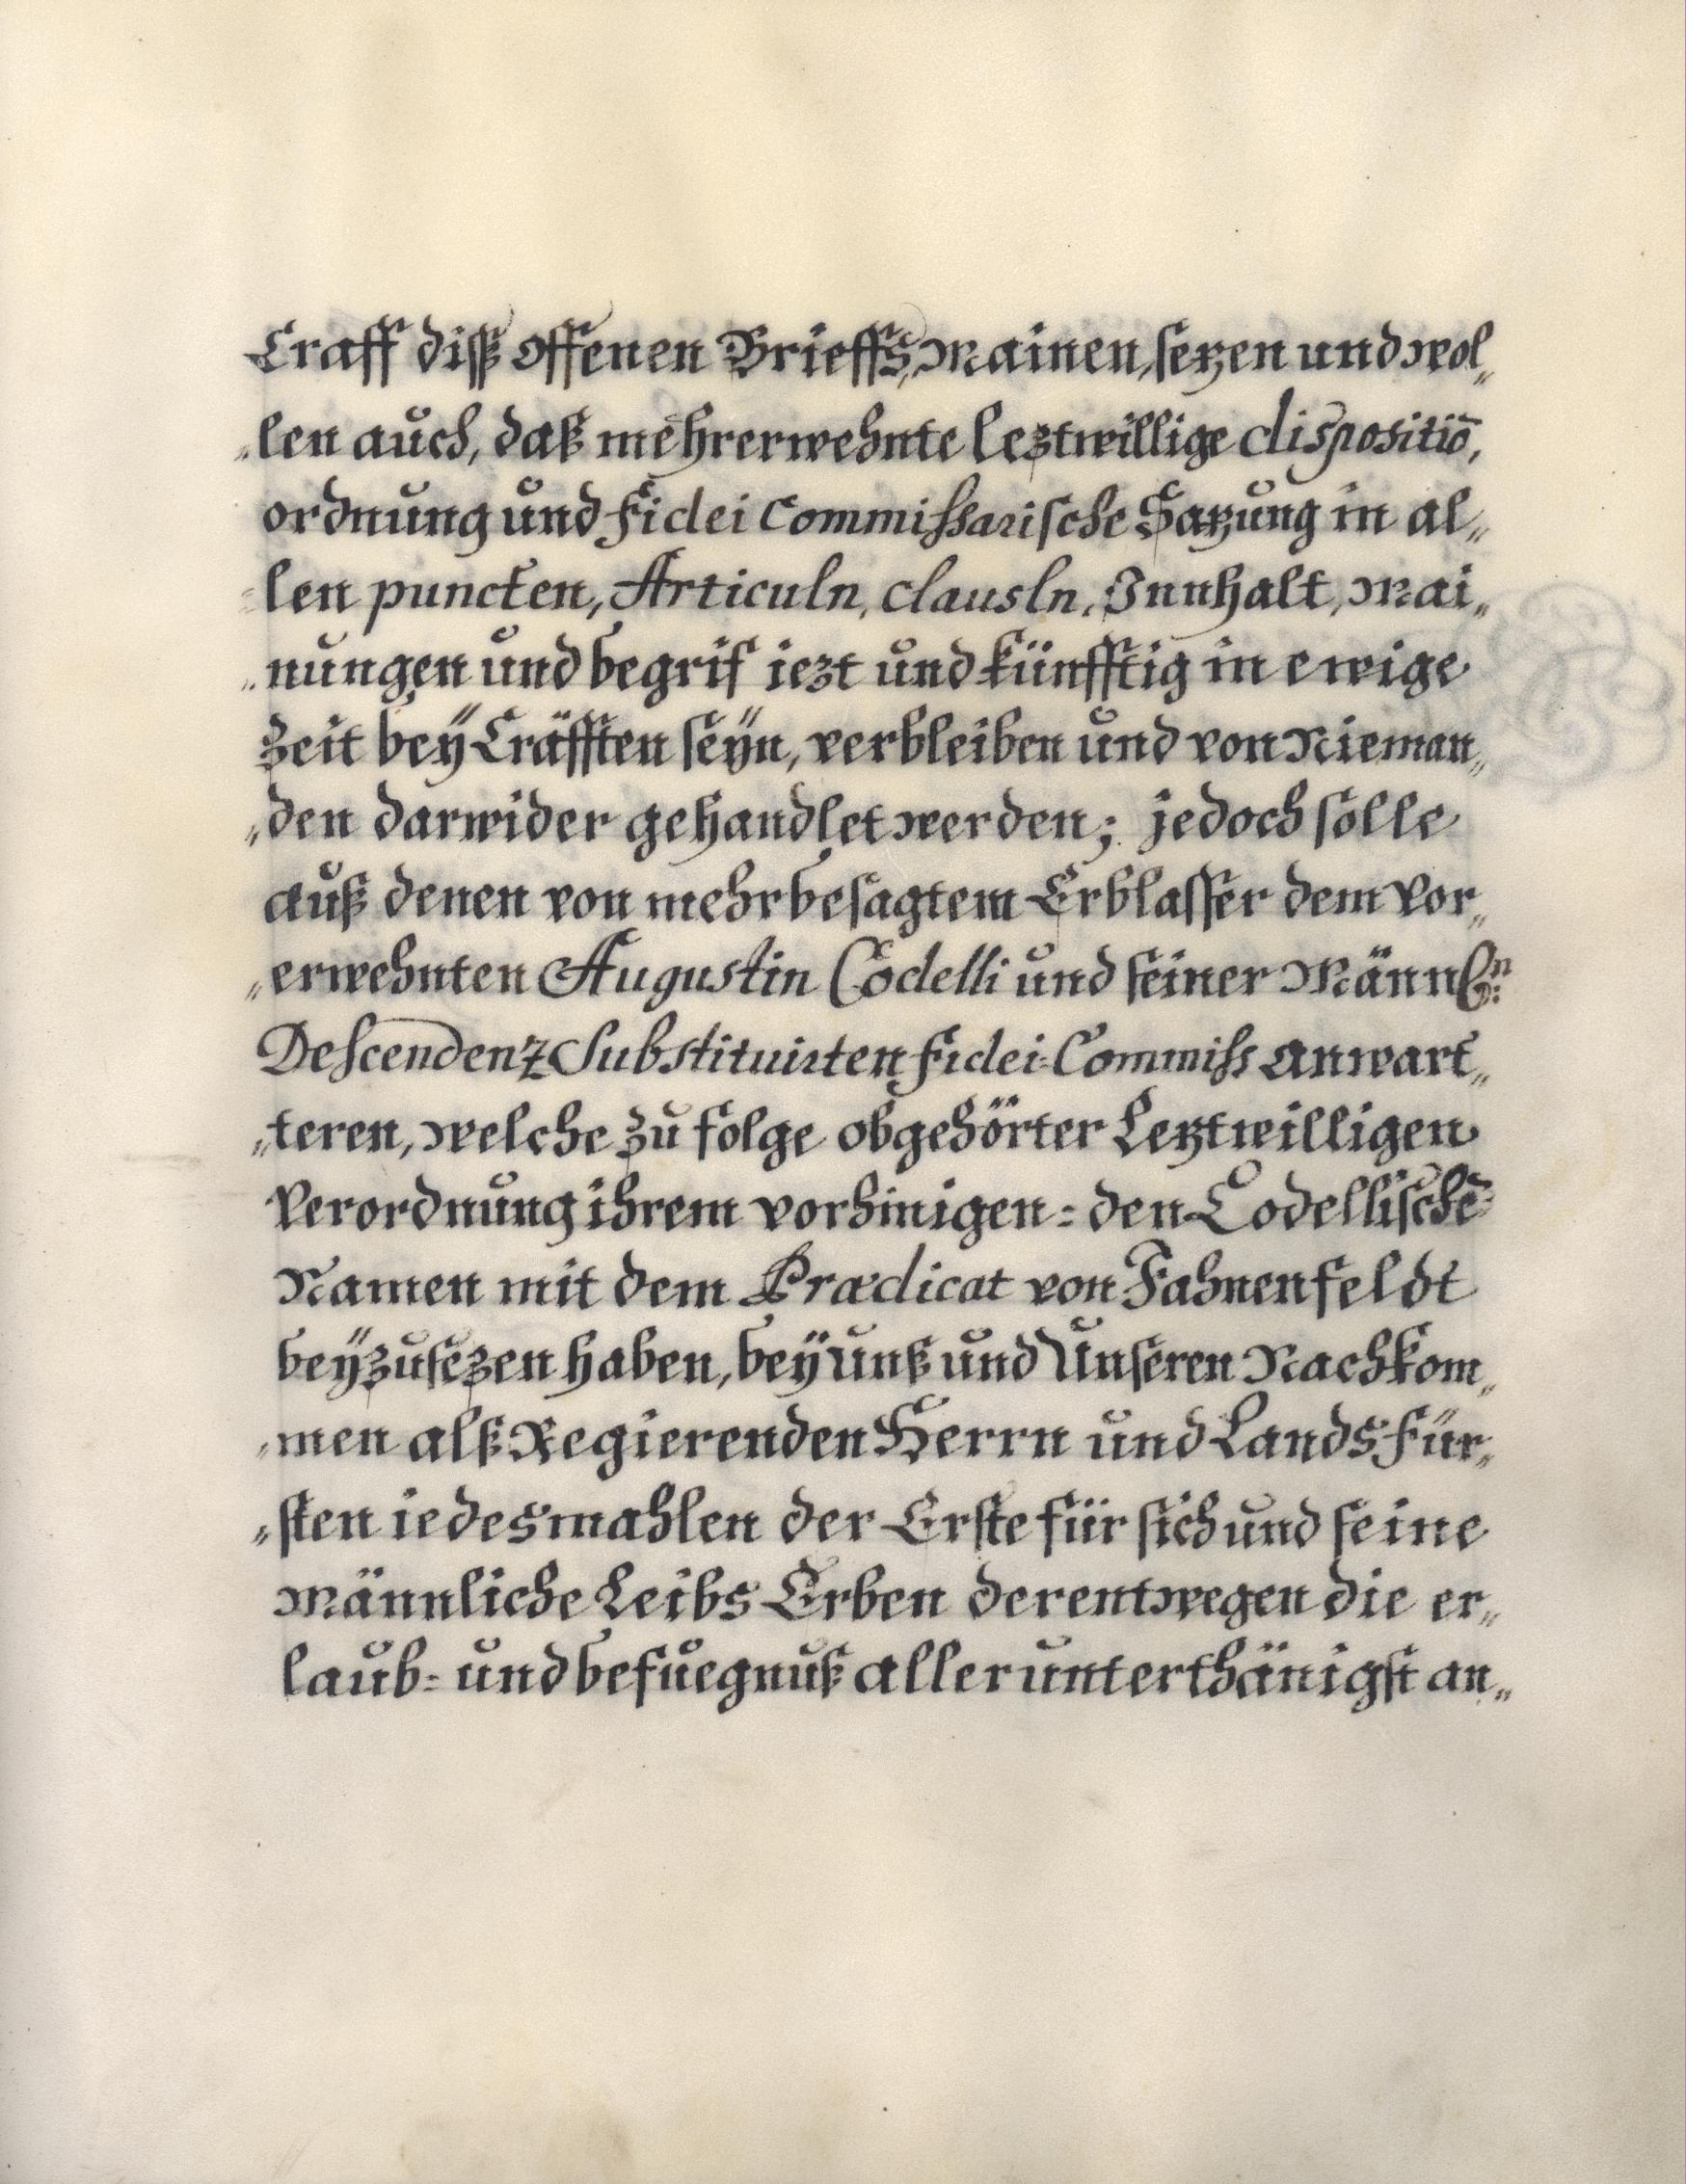 Crafft diß offenen Brieffs, Mainen, setzen und wol„
„len auch, daß mehrerwehnte leztwillige dispositiō,
ordnung und Fidei Commissarische Satzung in al„
„len puncten, Articuln, clausln, Innhalt, Mai„
„nungen und begrif iezt und künfftig in ewige
Zeit beÿ Cräfften seÿn, verbleiben und von Nieman„
„den darwider gehandlet werden; jedoch solle
auß denen von mehrbesagtem Erblasser dem vor„
„erwehnten Augustin Codelli und seiner Männl:n
Descendenz Substituirten Fidei-Commiss Anwart„
„teren, welche zu folge obgehörter Letztwilligen
Verordnung ihrem vorhinigen= den Codellischē
Namen mit dem Prædicat von Fahnenfeldt
beÿzusezen haben, beÿ unß und Unseren Nachkom„
„men alß Regierenden Herrn und Lands Für„
„sten iedesmahlen der Erste für sich und seine
Männliche Leibs Erben derentwegen die er„
laub= und befuegnuß allerunterthänigst an„